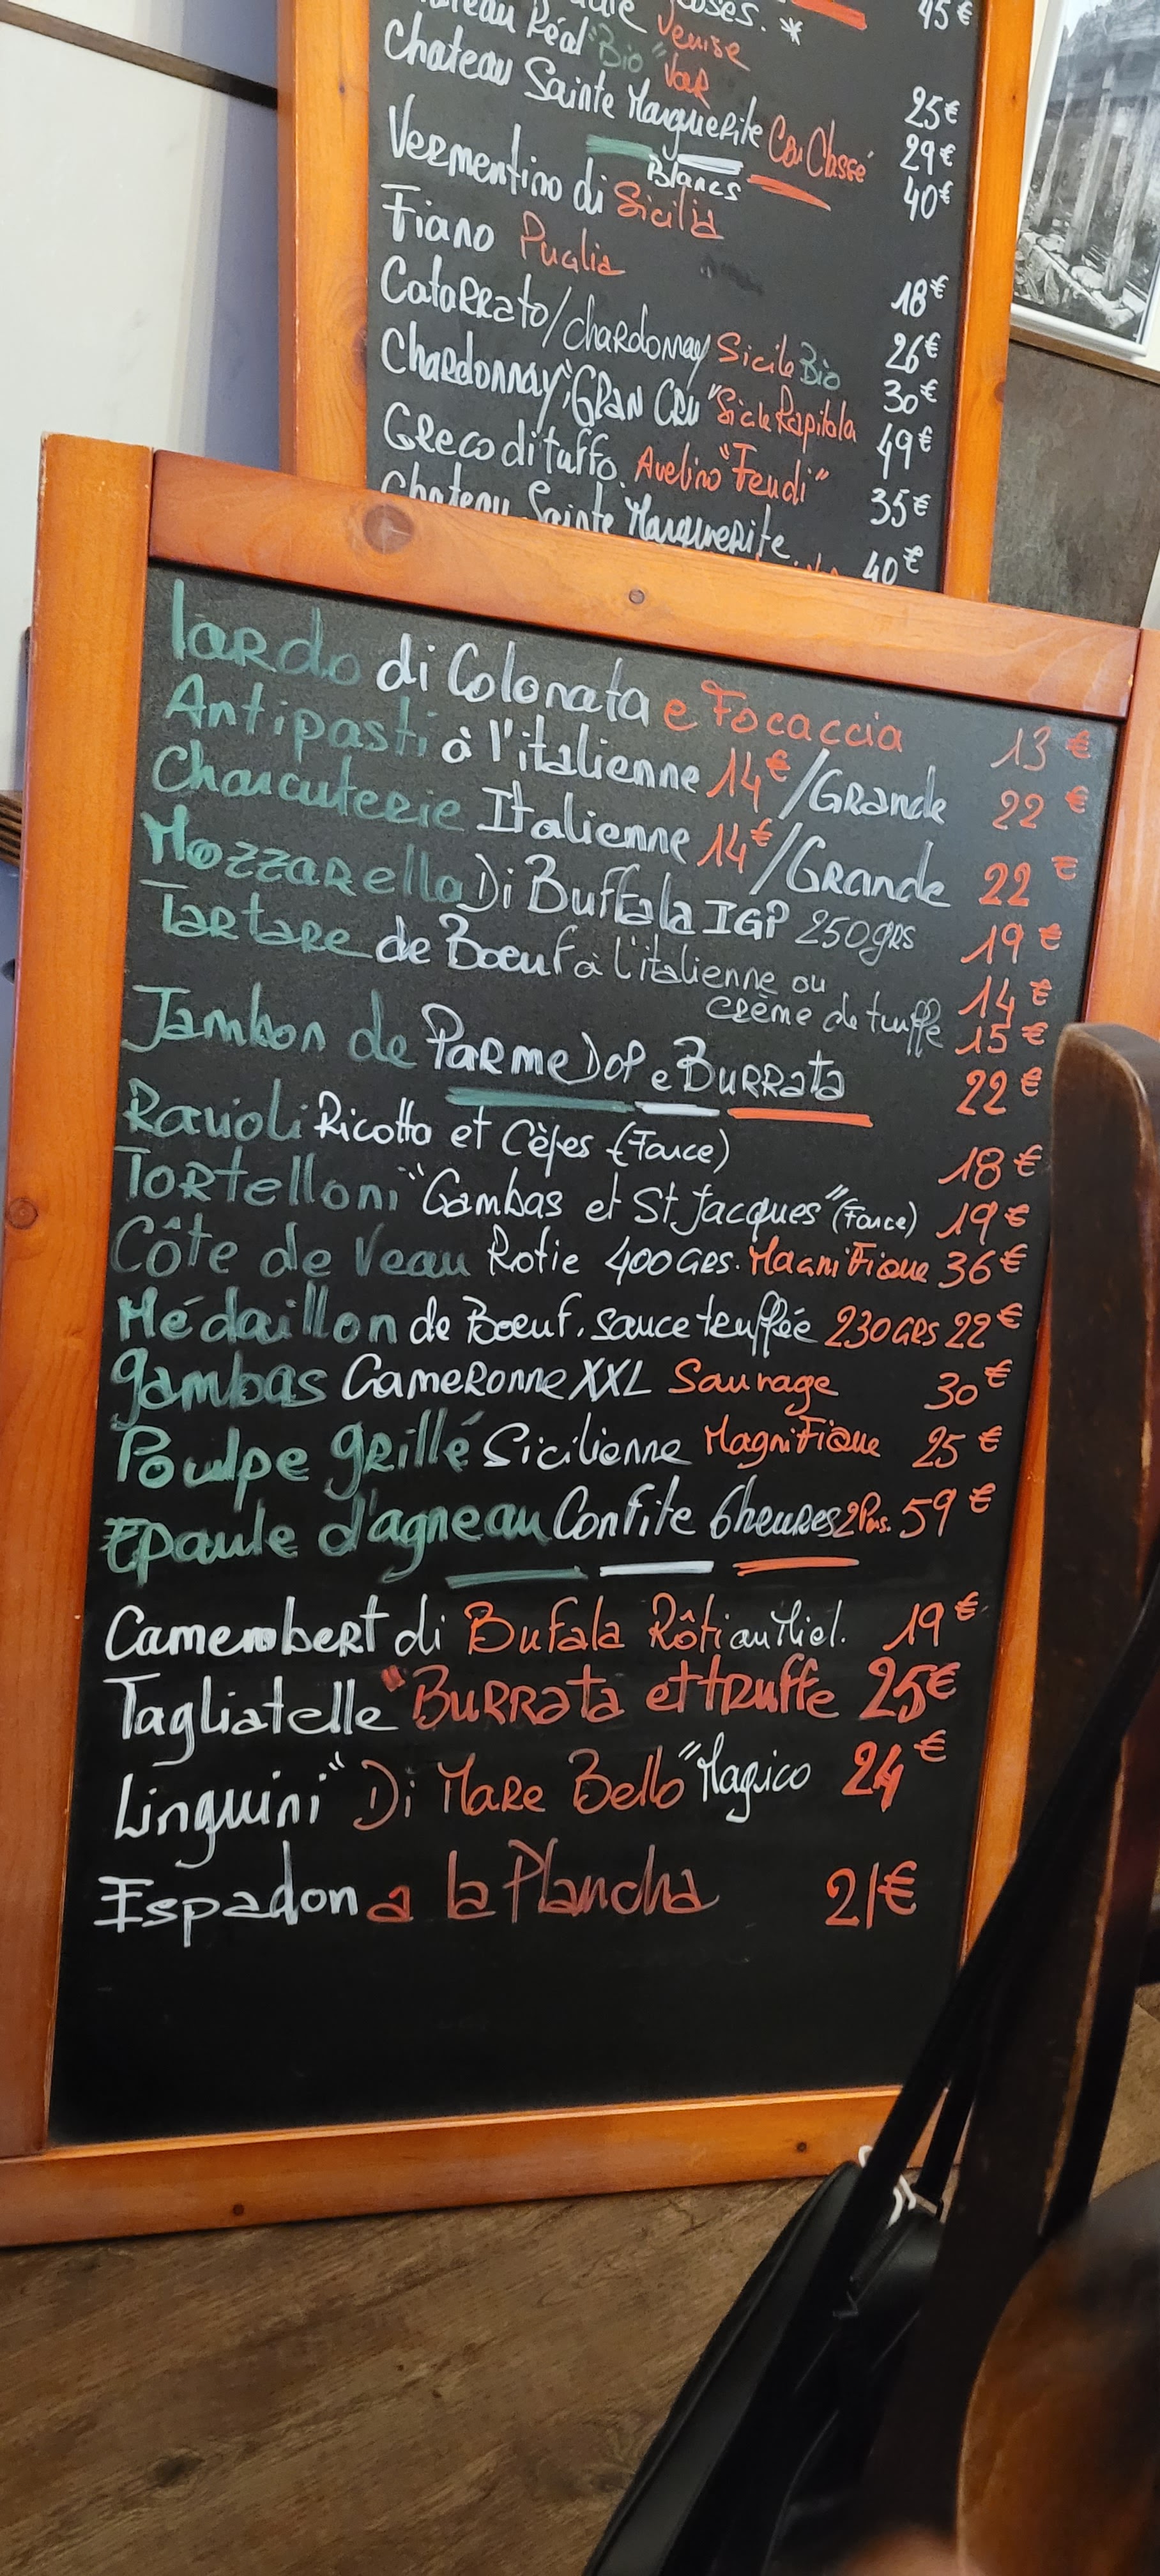 45€
Réal "Bio" Venise
Var
25€
Chateau Sainte Marguerite Cru Classé
29€
Blancs
40€
Vermentino di Sicilia
18€
Fiano Puglia
26€
Catarrato/chardonnay Sicile Bio
30€
Chardonnay, GRAN CRU "Sicile Rapitala
49€
Greco di tuffo. Avelino "Feudi"
35€
Chateau Sainte Marguerite
40€
lardo di Colonata e Focaccia 13€
Antipasti à l'italienne 14€/Grande 22€
Charcuterie Italienne 14€/Grande 22€
Mozzarella Di Buffala IGP 250grs 19€
Tartare de Boeuf à l'italienne ou 14€
crème de truffe 15€
Jambon de Parme DOP e Burrata 22€
Ravioli Ricotta et Cèpes (Farce) 18€
Tortelloni "Gambas et St Jacques" (Farce) 19€
Côte de Veau Rotie 400Grs. Magnifique 36€
Médaillon de Boeuf, sauce truffée 230Grs 22€
gambas Cameronne XXL Sauvage 30€
Poulpe grillé Sicilienne Magnifique 25€
Epaule d'agneau Confite 6heures 2Pers. 59€
Camembert di Bufala Rôti au Miel. 19€
Tagliatelle "Burrata et truffe 25€
Linguini "Di Mare Bello" Magico 24€
Espadon a la Plancha 21€